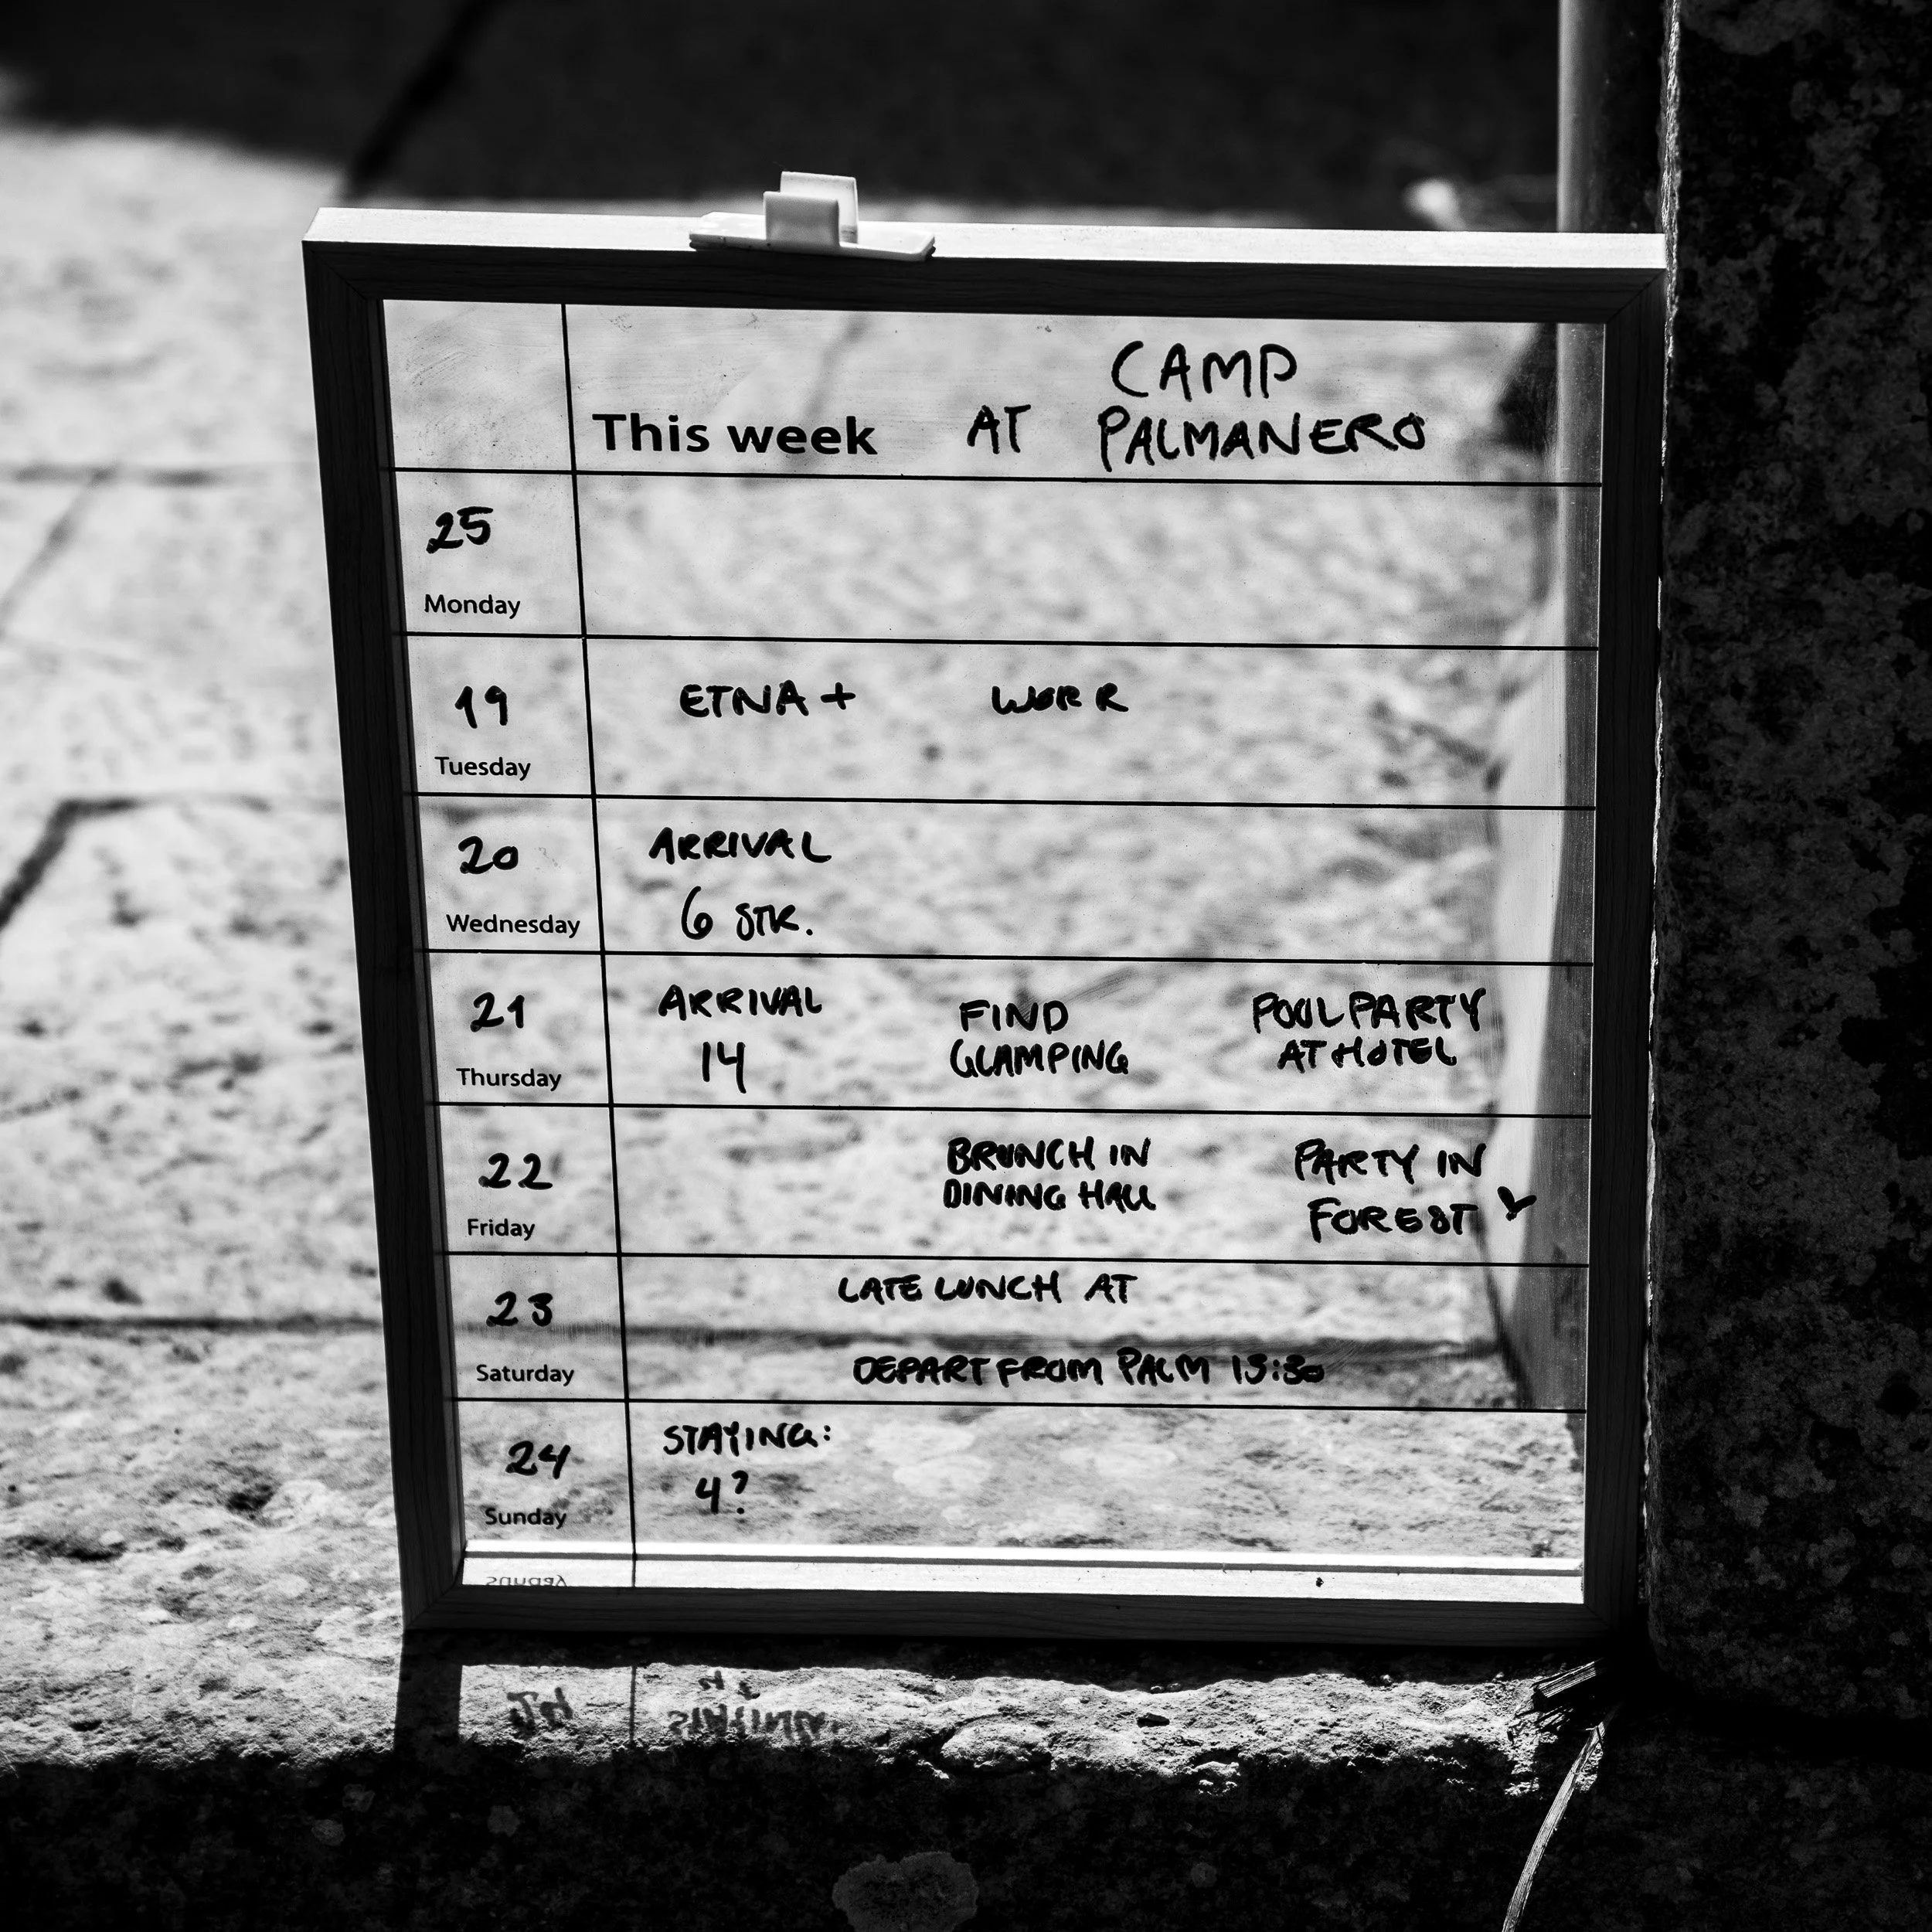 CAMP
This week AT PALMANERO
25
Monday
19 ETNA + WORK
Tuesday
20 ARRIVAL
6 STK.
Wednesday
21 ARRIVAL FIND POOLPARTY
14 GLAMPING AT HOTEL
Thursday
22 BRUNCH IN PARTY IN
DINING HALL FOREST
Friday
23 LATE LUNCH AT
Saturday DEPART FROM PALM 13:30
24 STAYING:
4?
Sunday